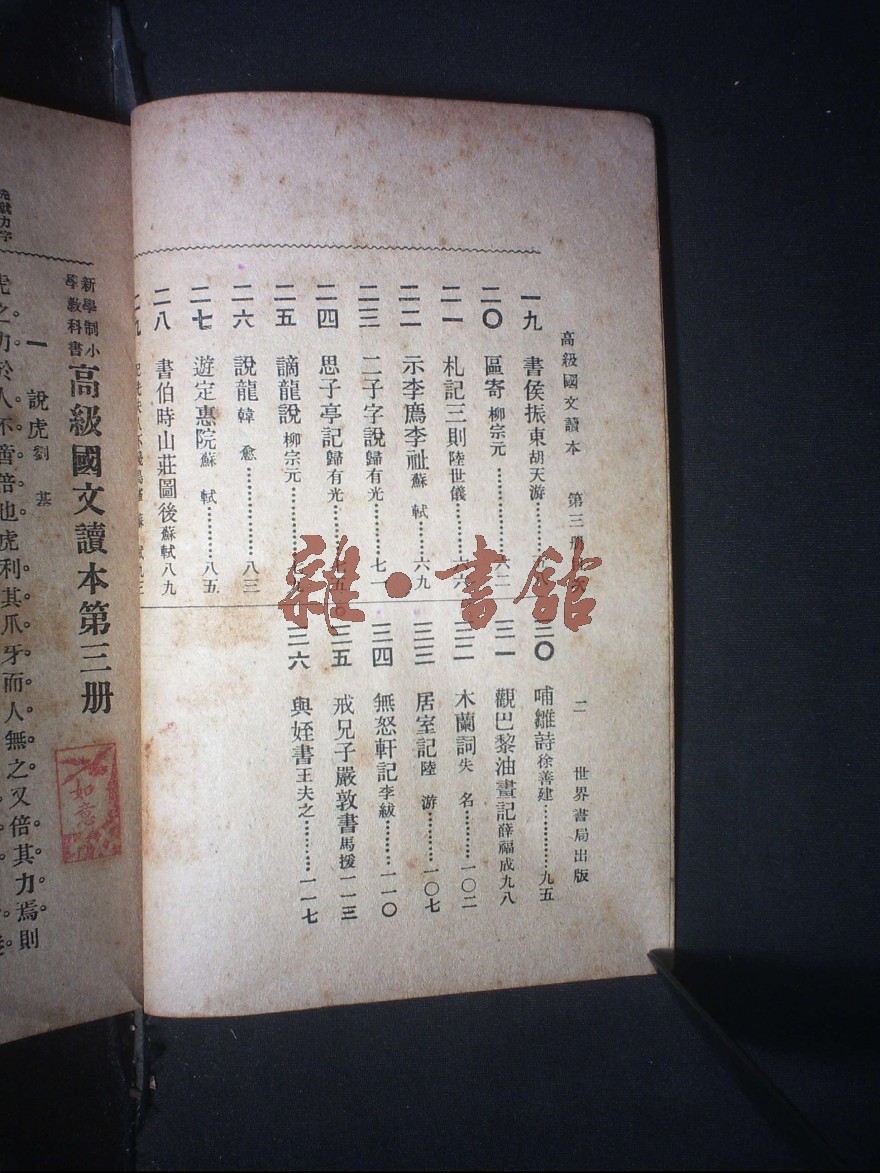 高級國文讀本 第三册 二 世界書局出版
一九 書侯振東胡天游
二〇 區寄柳宗元…………六二
二一 札記三則陸世儀…………六六
二二 示李廌李祉蘇 軾…………六九
二三 二子字說歸有光…………七一
二四 思子亭記歸有光…………七五
二五 謫龍說柳宗元
二六 說龍韓 愈…………八三
二七 遊定惠院蘇 軾…………八五
二八 書伯時山莊圖後蘇軾八九
二九
三〇 哺雛詩徐善建…………九五
三一 觀巴黎油畫記薛福成九八
三二 木蘭詞失 名…………一〇二
三三 居室記陸 游…………一〇七
三四 無怒軒記李紱…………一一〇
三五 戒兄子嚴敦書馬援一一三
三六 與姪書王夫之…………一一七
雜·書館
新學制小學教科書 高級國文讀本第三册
如意
一 說虎劉 基
虎之力於人不啻倍也虎利其爪牙而人無之又倍其力焉則